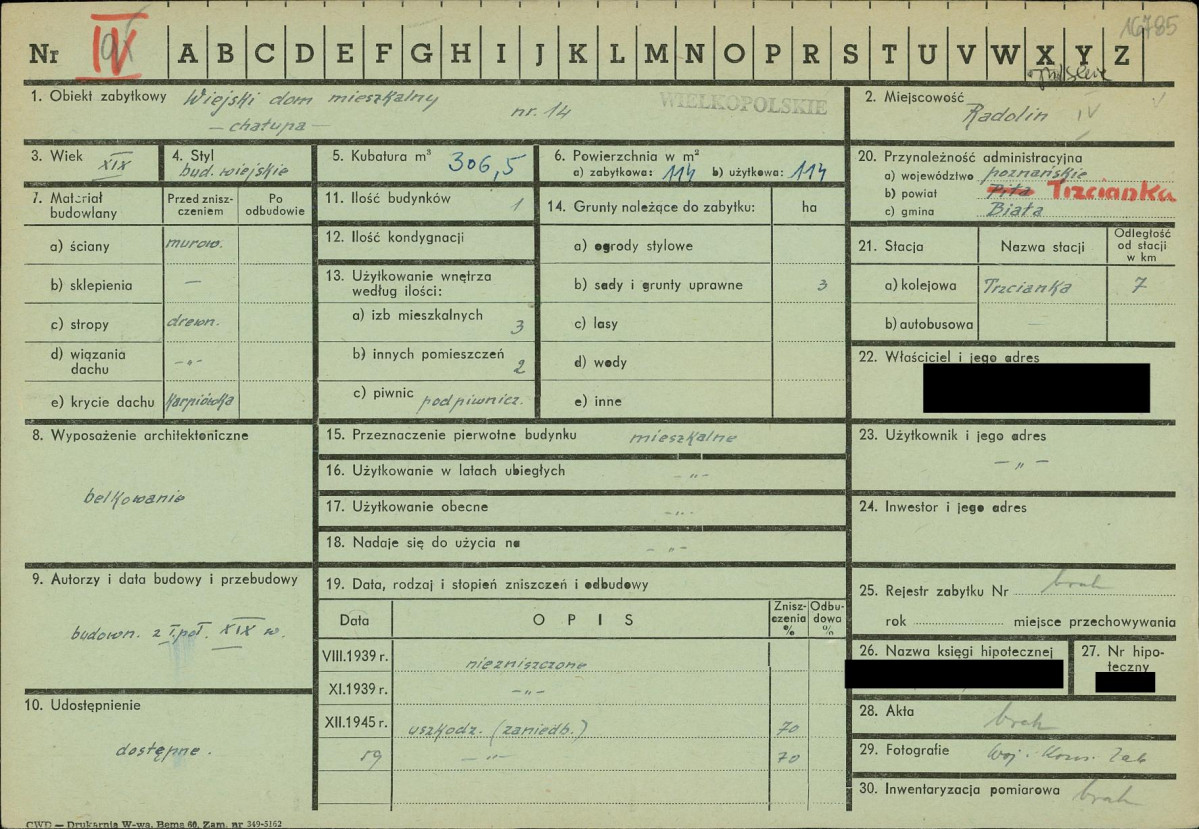 Nr IV A B C D E F G H I J K L M N O P R S T U V W X Y Z 16785
1. Obiekt zabytkowy Wiejski dom mieszkalny nr. 14
— chałupa —
WIELKOPOLSKIE
2. Miejscowość
Radolin IV
3. Wiek XIX
4. Styl
bud. wiejskie
5. Kubatura m³ 306,5
6. Powierzchnia w m²
a) zabytkowa: 114 b) użytkowa: 114
20. Przynależność administracyjna
a) województwo poznańskie
b) powiat Piła Trzcianka
c) gmina Biała
7. Materiał budowlany
Przed zniszczeniem
Po odbudowie
a) ściany murow.
b) sklepienia —
c) stropy drewn.
d) wiązania dachu -„-
e) krycie dachu karpiówka
11. Ilość budynków 1
12. Ilość kondygnacji
13. Użytkowanie wnętrza
według ilości:
a) izb mieszkalnych 3
b) innych pomieszczeń 2
c) piwnic podpiwnicz.
14. Grunty należące do zabytku: ha
a) ogrody stylowe
b) sady i grunty uprawne 3
c) lasy
d) wody
e) inne
21. Stacja Nazwa stacji Odległość od stacji w km
a) kolejowa Trzcianka 7
b) autobusowa —
22. Właściciel i jego adres
8. Wyposażenie architektoniczne
belkowanie
15. Przeznaczenie pierwotne budynku mieszkalne
16. Użytkowanie w latach ubiegłych -„-
17. Użytkowanie obecne -„-
18. Nadaje się do użycia na -„-
23. Użytkownik i jego adres
— „ —
24. Inwestor i jego adres
9. Autorzy i data budowy i przebudowy
budown. z I. poł. XIX w.
19. Data, rodzaj i stopień zniszczeń i odbudowy
Data OPIS Zniszczenia % Odbudowa %
VIII.1939 r. niezniszczone
XI.1939 r. -„-
XII.1945 r. uszkodz. (zaniedb.) 70
59 — „ — 70
25. Rejestr zabytku Nr brak
rok miejsce przechowywania
26. Nazwa księgi hipotecznej
27. Nr hipoteczny
10. Udostępnienie
dostępne.
28. Akta brak
29. Fotografie Woj. Kons. Zab
30. Inwentaryzacja pomiarowa brak
CWD — Drukarnia W-wa, Bema 60, Zam. nr 349-5162